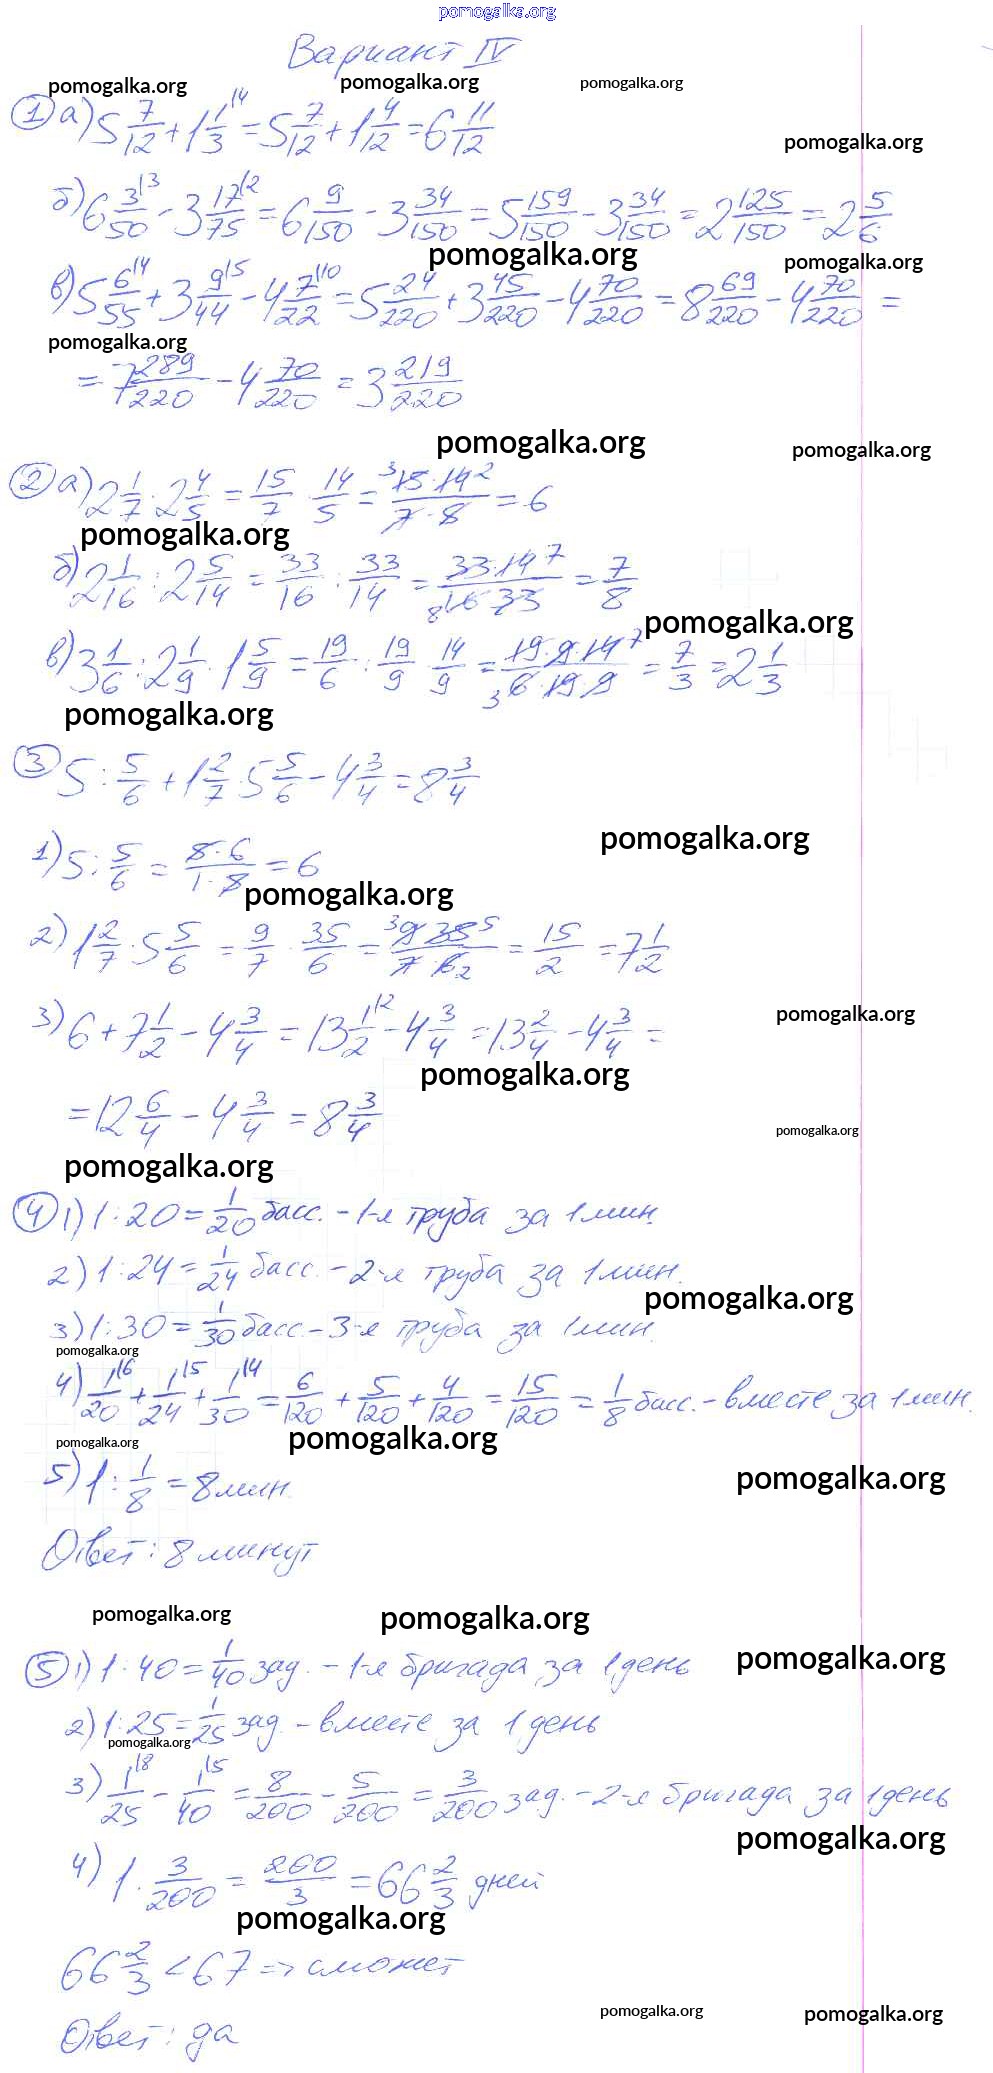 pomogalka.org
Вариант IV
pomogalka.org pomogalka.org pomogalka.org
① а) 5 7/12 + 1 1/3 |4 = 5 7/12 + 1 4/12 = 6 11/12
pomogalka.org
б) 6 3/50 |3 - 3 17/75 |2 = 6 9/150 - 3 34/150 = 5 159/150 - 3 34/150 = 2 125/150 = 2 5/6
pomogalka.org pomogalka.org
в) 5 6/55 |4 + 3 9/44 |5 - 4 7/22 |10 = 5 24/220 + 3 45/220 - 4 70/220 = 8 69/220 - 4 70/220 =
pomogalka.org
= 7 289/220 - 4 70/220 = 3 219/220
pomogalka.org pomogalka.org
② а) 2 1/7 · 2 4/5 = 15/7 · 14/5 = 3 15·14 2/7·5 = 6
pomogalka.org
б) 2 1/16 : 2 5/14 = 33/16 : 33/14 = 33·14 7/8 16·33 = 7/8
pomogalka.org
в) 3 1/6 : 2 1/9 · 1 5/9 = 19/6 : 19/9 · 14/9 = 19·9·14 7/3 6·19·9 = 7/3 = 2 1/3
pomogalka.org
③ 5 : 5/6 + 1 2/7 · 5 5/6 - 4 3/4 = 8 3/4
pomogalka.org
1) 5 : 5/6 = 5·6/1·5 = 6
pomogalka.org
2) 1 2/7 · 5 5/6 = 9/7 · 35/6 = 3 9·35 5/7·6 2 = 15/2 = 7 1/2
pomogalka.org
3) 6 + 7 1/2 - 4 3/4 = 13 1/2 |2 - 4 3/4 = 13 2/4 - 4 3/4 =
pomogalka.org
= 12 6/4 - 4 3/4 = 8 3/4
pomogalka.org
pomogalka.org
④ 1) 1 : 20 = 1/20 басс. - 1-я труба за 1 мин.
2) 1 : 24 = 1/24 басс. - 2-я труба за 1 мин.
pomogalka.org
3) 1 : 30 = 1/30 басс. - 3-я труба за 1 мин.
pomogalka.org
4) 1/20 |6 + 1/24 |5 + 1/30 |4 = 6/120 + 5/120 + 4/120 = 15/120 = 1/8 басс. - вместе за 1 мин.
pomogalka.org pomogalka.org
5) 1 : 1/8 = 8 мин.
pomogalka.org
Ответ: 8 минут
pomogalka.org pomogalka.org
⑤ 1) 1 : 40 = 1/40 зад. - 1-я бригада за 1 день
pomogalka.org
2) 1 : 25 = 1/25 зад. - вместе за 1 день
pomogalka.org
3) 1/25 |8 - 1/40 |5 = 8/200 - 5/200 = 3/200 зад. - 2-я бригада за 1 день
pomogalka.org
4) 1 · 3/200 = 200/3 = 66 2/3 дней
pomogalka.org
66 2/3 < 67 => сможет
pomogalka.org pomogalka.org
Ответ: да